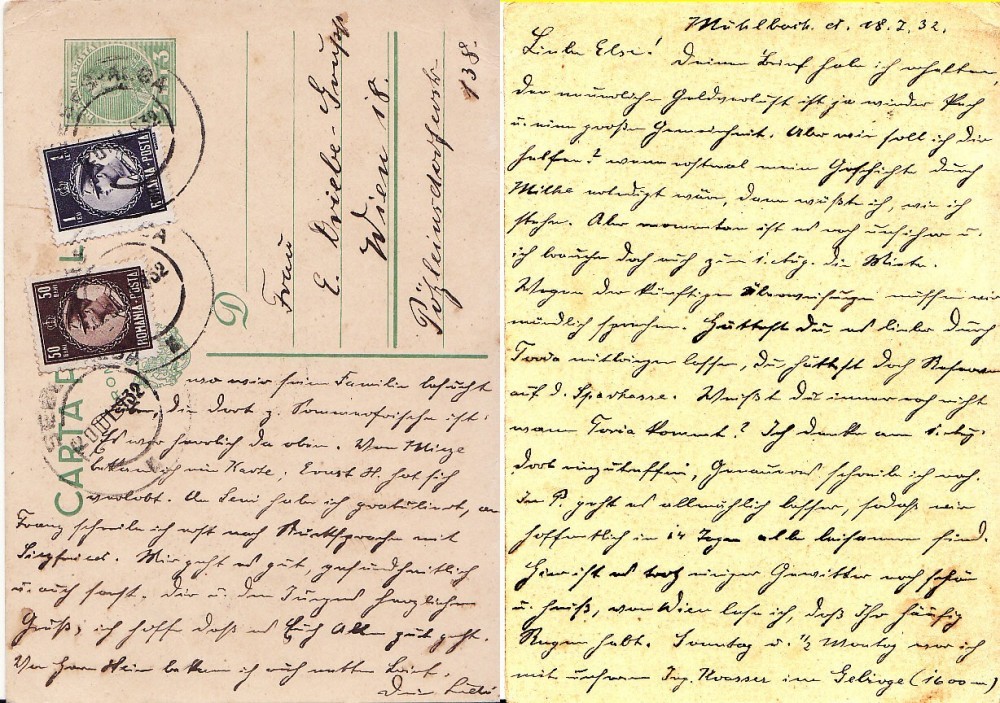 CARTA P
1 LEU
ROMANIA·POSTA
50 BANI
ROMANIA·POSTA
D
Frau
E. Driebe-
Wien 18.
Pötzleinsdorferstr.
138.
Mühlbach d. 18.7.32.
Liebe Else! Deinen Brief hab ich erhalten,
der neuerliche Geldverlust ist ja wieder Pech
u. eine große Gemeinheit. Aber wie soll ich dir
helfen? wenn erstmal meine Geschichte durch
erledigt wär, dann wüßte ich, wie ich
stehe. Aber momentan ist es noch unsicher u.
ich brauche doch auch zum 1. Aug. die Miete.
Wegen der künftigen Überweisungen müssen wir
mündlich sprechen. Hättest du es lieber durch
mitbringen lassen, du hättest doch
auf d. Sparkasse. Weißt du immer noch nicht
wann kommt? Ich denke am 1. Aug.
dort einzutreffen, Genaueres schreibe ich noch.
In P. geht es allmählich besser, sodaß wir
hoffentlich in 14 Tagen alle beisammen sind.
Hier ist es trotz einiger Gewitter noch schön
u. heiß, von Wien lese ich, daß Ihr häufig
Regen habt. Sonntag u. ½ Montag war ich
mit unserem Ing. im Gebirge (1600 m)
wo wir seine Familie besucht
die dort z. Sommerfrische ist.
Es war herrlich da oben. Von
bekam ich eine Karte; Ernst H. hat sich
verlobt. An habe ich gratuliert, an
Franz schreibe ich erst nach Rücksprache mit
Siegfried. Mir geht es gut, gesundheitlich
u. auch sonst. Dir u. den Jungens herzlichen
Gruß, ich hoffe daß es Euch Allen gut geht.
Von bekam ich auch netten Brief.
Dein